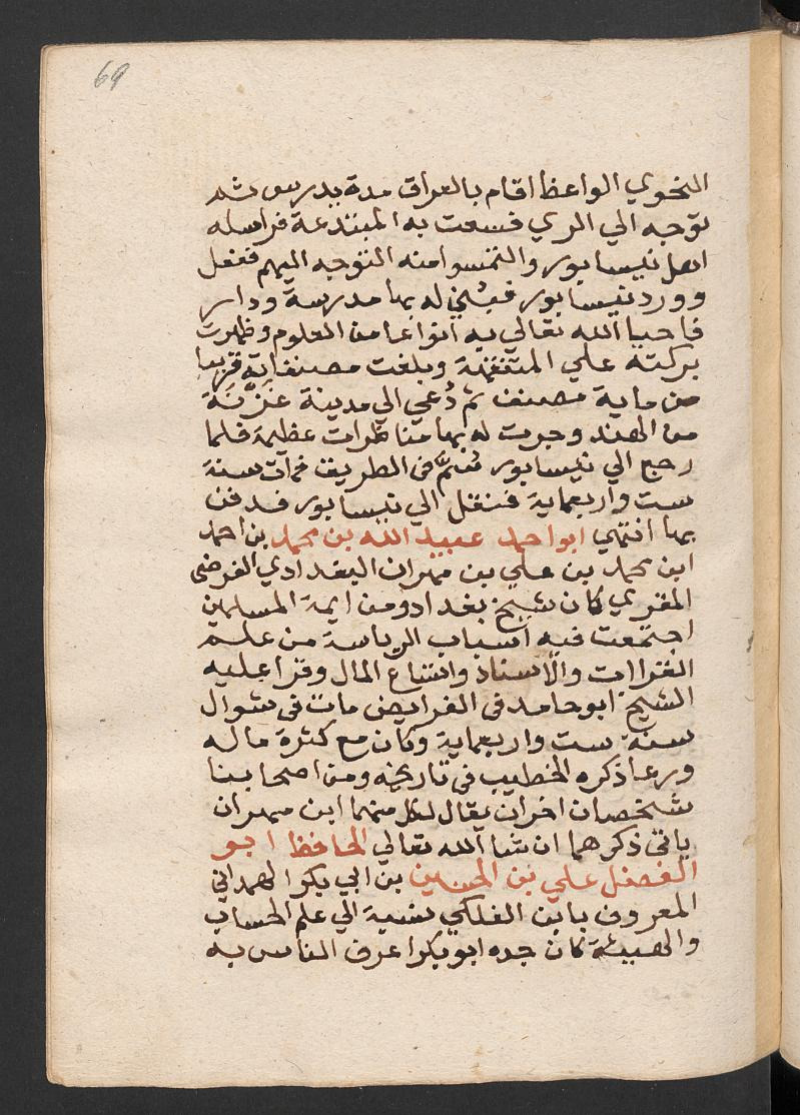 69
النحوي الواعظ اقام بالعراق مدة يدرس ثم
توجه الي الري فسعت به المبتدعة فراسله
اهل نيسابور والتمسوا منه التوجه اليهم ففعل
وورد نيسابور فبُني له بها مدرسة ودار
فاحيا الله تعالي به انواعا من العلوم وظهرت
بركته علي المتفقهة وبلغت مصنفاته قريبا
من ماية مصنف ثم دُعي الي مدينة غَزْنَة
من الهند وجرت له بها مناظرات عظيمة فلما
رجع الي نيسابور سُمَّ في الطريق فمات سنة
ست واربعماية فنقل الي نيسابور فدفن
بها انتهي ابو احمد عبيد الله بن محمد بن احمد
ابن محمد بن علي بن مهران البغدادي الفرضي
المقري كان شيخ بغداد ومن ايمة المسلمين
اجتمعت فيه اسباب الرياسة من علم
القراات والاسناد واتساع المال وقرا عليه
الشيخ ابو حامد في الفرايض مات في شوال
سنة ست واربعماية وكان مع كثرة ماله
ورعا ذكره الخطيب في تاريخه ومن اصحابنا
شخصان اخران يقال لكل منهما ابن مهران
ياتي ذكرهما ان شا الله تعالي الحافظ ابو
الفضل علي بن الحسين بن ابي بكر الهمداني
المعروف بابن الفلكي نسبة الي علم الحساب
والهيئة كان جده ابو بكر اعرف الناس به